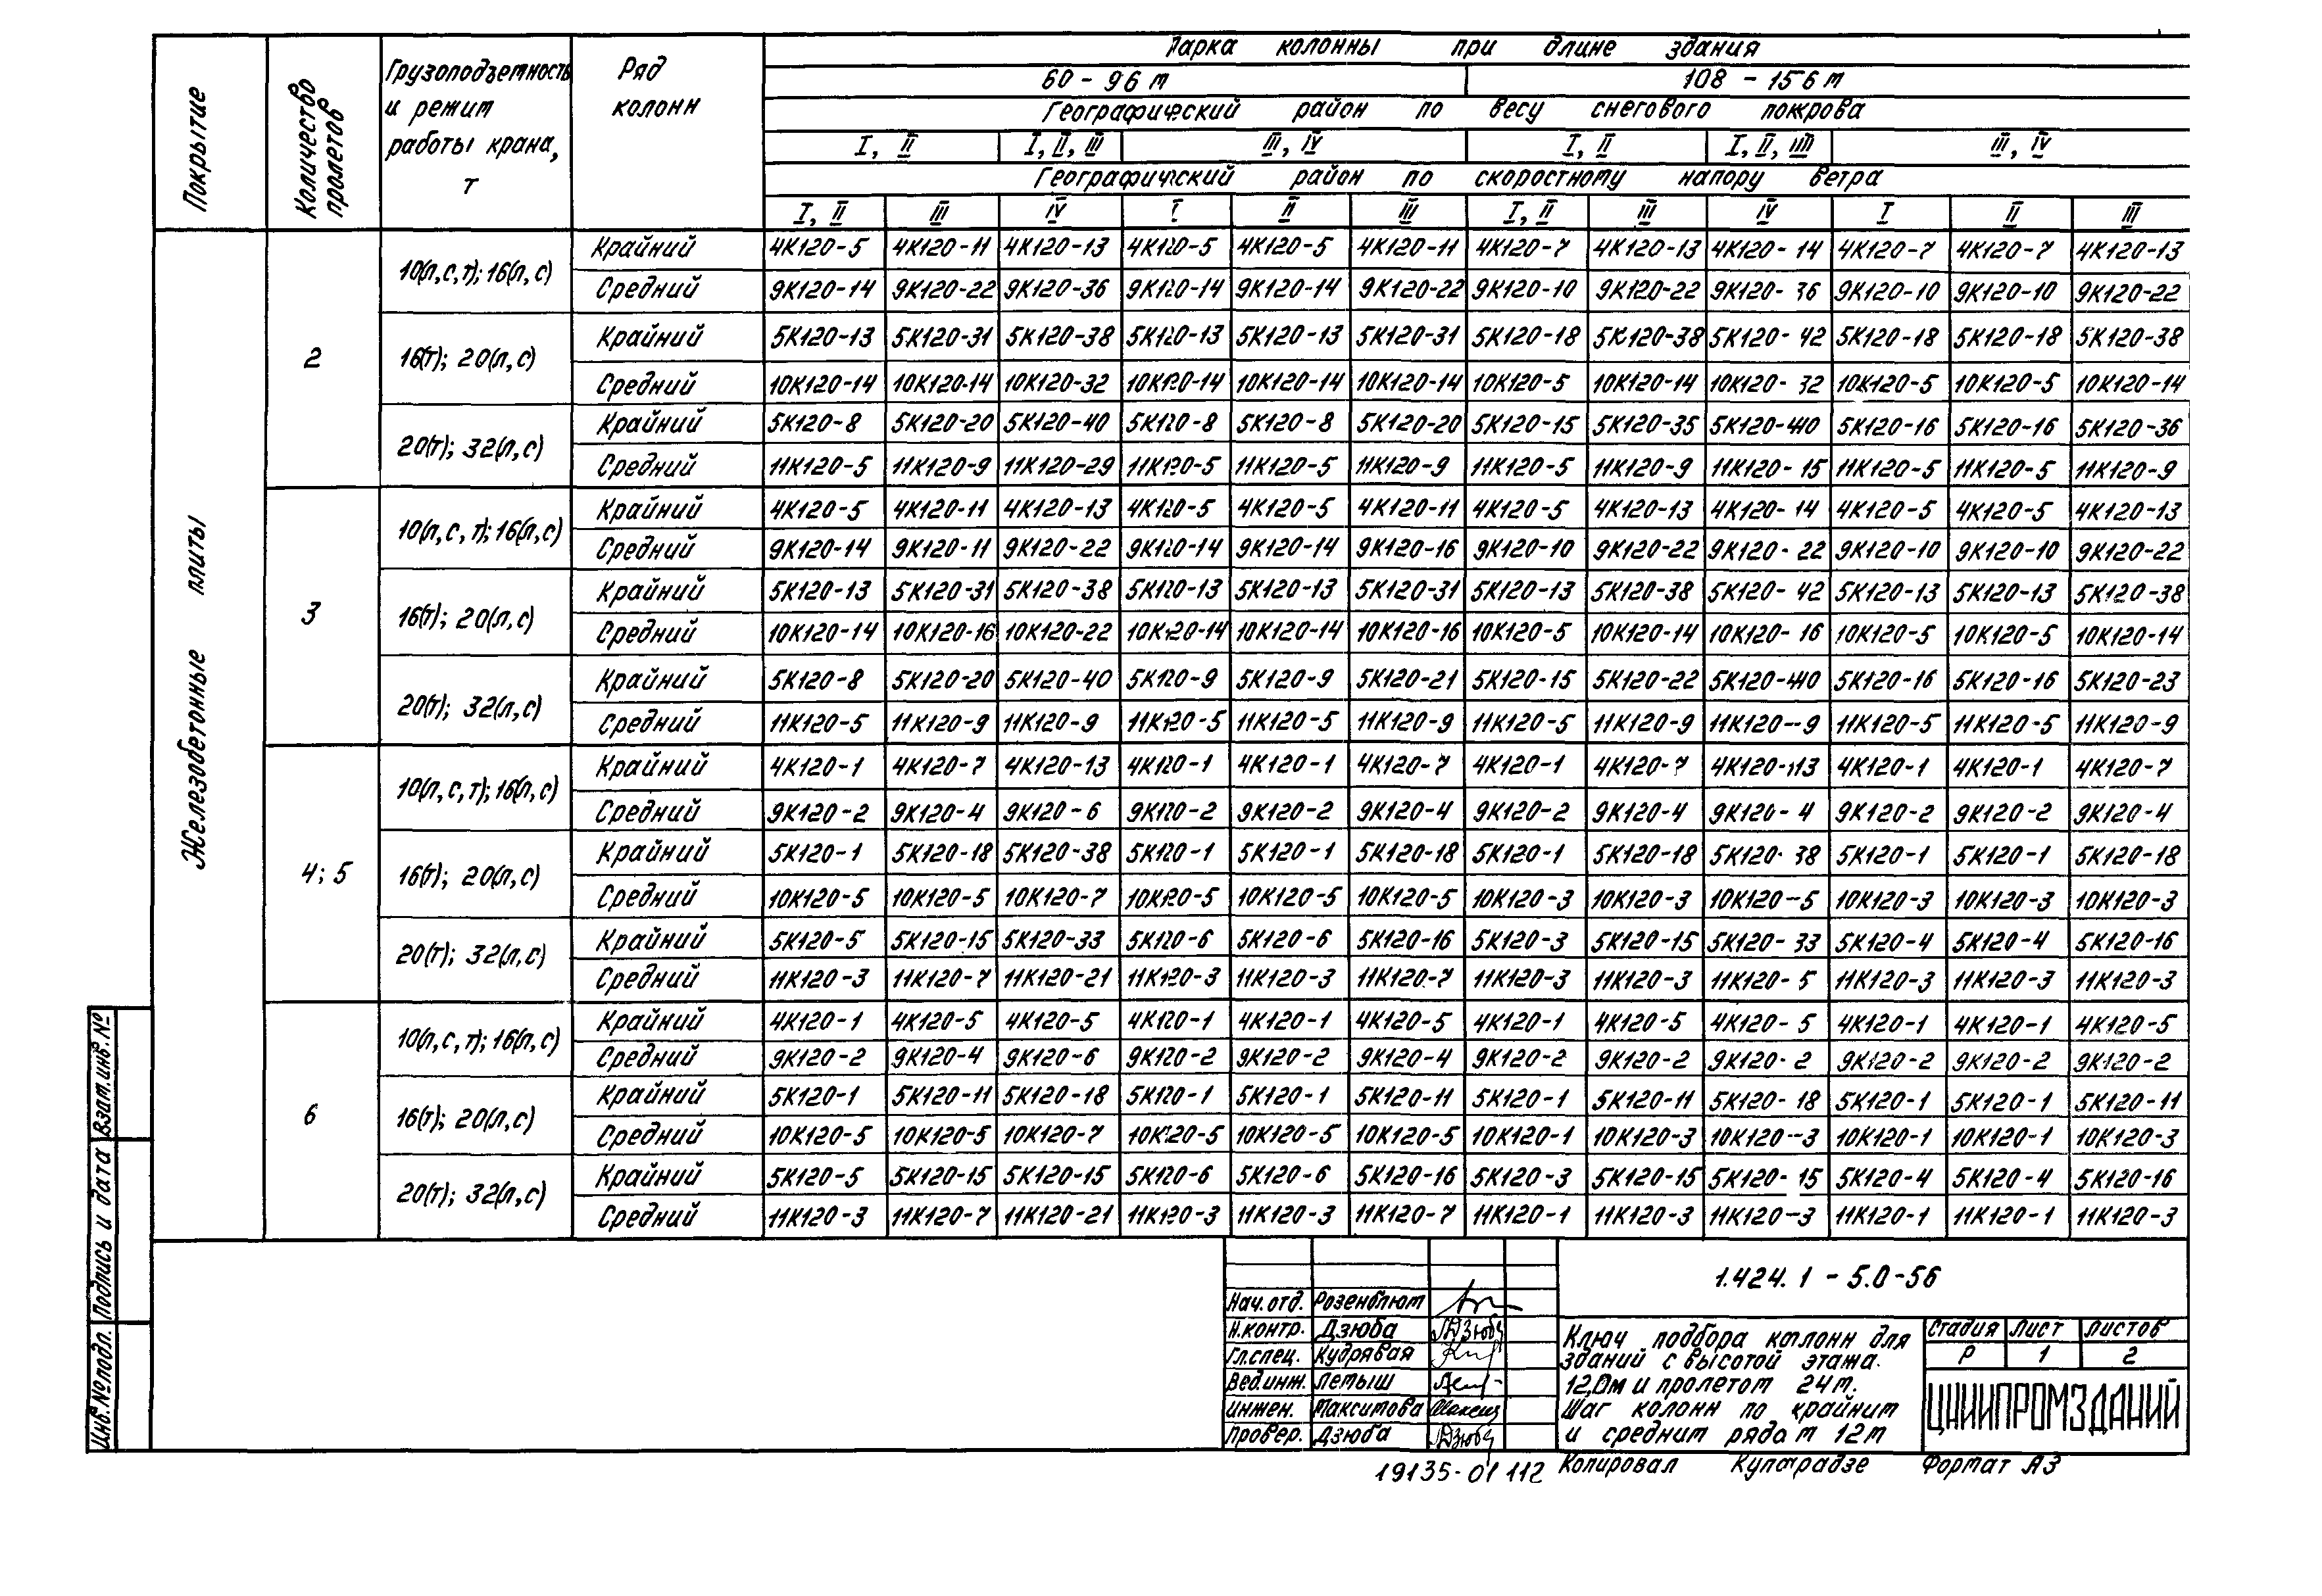 Марка колонны при длине здания
Покрытие
Количество пролетов
Грузоподъемность и режим работы крана, т
Ряд колонн
60 - 96 м
108 - 156 м
Географический район по весу снегового покрова
I, II
I, II, III
III, IV
I, II
I, II, III
III, IV
Географический район по скоростному напору ветра
I, II III IV I II III I, II III IV I II III
Железобетонные плиты
2
10(л,с,т); 16(л,с)
Крайний 4К120-5 4К120-11 4К120-13 4К120-5 4К120-5 4К120-11 4К120-7 4К120-13 4К120-14 4К120-7 4К120-7 4К120-13
Средний 9К120-14 9К120-22 9К120-36 9К120-14 9К120-14 9К120-22 9К120-10 9К120-22 9К120-36 9К120-10 9К120-10 9К120-22
16(т); 20(л,с)
Крайний 5К120-13 5К120-31 5К120-38 5К120-13 5К120-13 5К120-31 5К120-18 5К120-38 5К120-42 5К120-18 5К120-18 5К120-38
Средний 10К120-14 10К120-14 10К120-32 10К120-14 10К120-14 10К120-14 10К120-5 10К120-14 10К120-32 10К120-5 10К120-5 10К120-14
20(т); 32(л,с)
Крайний 5К120-8 5К120-20 5К120-40 5К120-8 5К120-8 5К120-20 5К120-15 5К120-35 5К120-40 5К120-16 5К120-16 5К120-36
Средний 11К120-5 11К120-9 11К120-29 11К120-5 11К120-5 11К120-9 11К120-5 11К120-9 11К120-15 11К120-5 11К120-5 11К120-9
3
10(л,с,т); 16(л,с)
Крайний 4К120-5 4К120-11 4К120-13 4К120-5 4К120-5 4К120-11 4К120-5 4К120-13 4К120-14 4К120-5 4К120-5 4К120-13
Средний 9К120-14 9К120-11 9К120-22 9К120-14 9К120-14 9К120-16 9К120-10 9К120-22 9К120-22 9К120-10 9К120-10 9К120-22
16(т); 20(л,с)
Крайний 5К120-13 5К120-31 5К120-38 5К120-13 5К120-13 5К120-31 5К120-13 5К120-38 5К120-42 5К120-13 5К120-13 5К120-38
Средний 10К120-14 10К120-16 10К120-22 10К120-14 10К120-14 10К120-16 10К120-5 10К120-14 10К120-16 10К120-5 10К120-5 10К120-14
20(т); 32(л,с)
Крайний 5К120-8 5К120-20 5К120-40 5К120-9 5К120-9 5К120-21 5К120-15 5К120-22 5К120-40 5К120-16 5К120-16 5К120-23
Средний 11К120-5 11К120-9 11К120-9 11К120-5 11К120-5 11К120-9 11К120-5 11К120-9 11К120-9 11К120-5 11К120-5 11К120-9
4; 5
10(л,с,т); 16(л,с)
Крайний 4К120-1 4К120-7 4К120-13 4К120-1 4К120-1 4К120-7 4К120-1 4К120-7 4К120-13 4К120-1 4К120-1 4К120-7
Средний 9К120-2 9К120-4 9К120-6 9К120-2 9К120-2 9К120-4 9К120-2 9К120-4 9К120-4 9К120-2 9К120-2 9К120-4
16(т); 20(л,с)
Крайний 5К120-1 5К120-18 5К120-38 5К120-1 5К120-1 5К120-18 5К120-1 5К120-18 5К120-38 5К120-1 5К120-1 5К120-18
Средний 10К120-5 10К120-5 10К120-7 10К120-5 10К120-5 10К120-5 10К120-3 10К120-3 10К120-5 10К120-3 10К120-3 10К120-3
20(т); 32(л,с)
Крайний 5К120-5 5К120-15 5К120-33 5К120-6 5К120-6 5К120-16 5К120-3 5К120-15 5К120-33 5К120-4 5К120-4 5К120-16
Средний 11К120-3 11К120-7 11К120-21 11К120-3 11К120-3 11К120-7 11К120-3 11К120-3 11К120-5 11К120-3 11К120-3 11К120-3
6
10(л,с,т); 16(л,с)
Крайний 4К120-1 4К120-5 4К120-5 4К120-1 4К120-1 4К120-5 4К120-1 4К120-5 4К120-5 4К120-1 4К120-1 4К120-5
Средний 9К120-2 9К120-4 9К120-6 9К120-2 9К120-2 9К120-4 9К120-2 9К120-2 9К120-2 9К120-2 9К120-2 9К120-2
16(т); 20(л,с)
Крайний 5К120-1 5К120-11 5К120-18 5К120-1 5К120-1 5К120-11 5К120-1 5К120-11 5К120-18 5К120-1 5К120-1 5К120-11
Средний 10К120-5 10К120-5 10К120-7 10К120-5 10К120-5 10К120-5 10К120-1 10К120-3 10К120-3 10К120-1 10К120-1 10К120-3
20(т); 32(л,с)
Крайний 5К120-5 5К120-15 5К120-15 5К120-6 5К120-6 5К120-16 5К120-3 5К120-15 5К120-15 5К120-4 5К120-4 5К120-16
Средний 11К120-3 11К120-7 11К120-21 11К120-3 11К120-3 11К120-7 11К120-1 11К120-3 11К120-3 11К120-1 11К120-1 11К120-3
Взам.инв.№
Подпись и дата
Инв.№подл.
Нач.отд. Розенблюм
Н.контр. Дзюба
Гл.спец. Кудрявая
Вед.инж. Лемыш
Инжен. Максимова
Провер. Дзюба
1.424.1 - 5.0-56
Ключ подбора колонн для
зданий с высотой этажа.
12,0м и пролетом 24м.
Шаг колонн по крайним
и средним рядам 12м
Стадия Лист Листов
Р 1 2
ЦНИИПРОМЗДАНИЙ
19135-01 112
Копировал
Формат А3